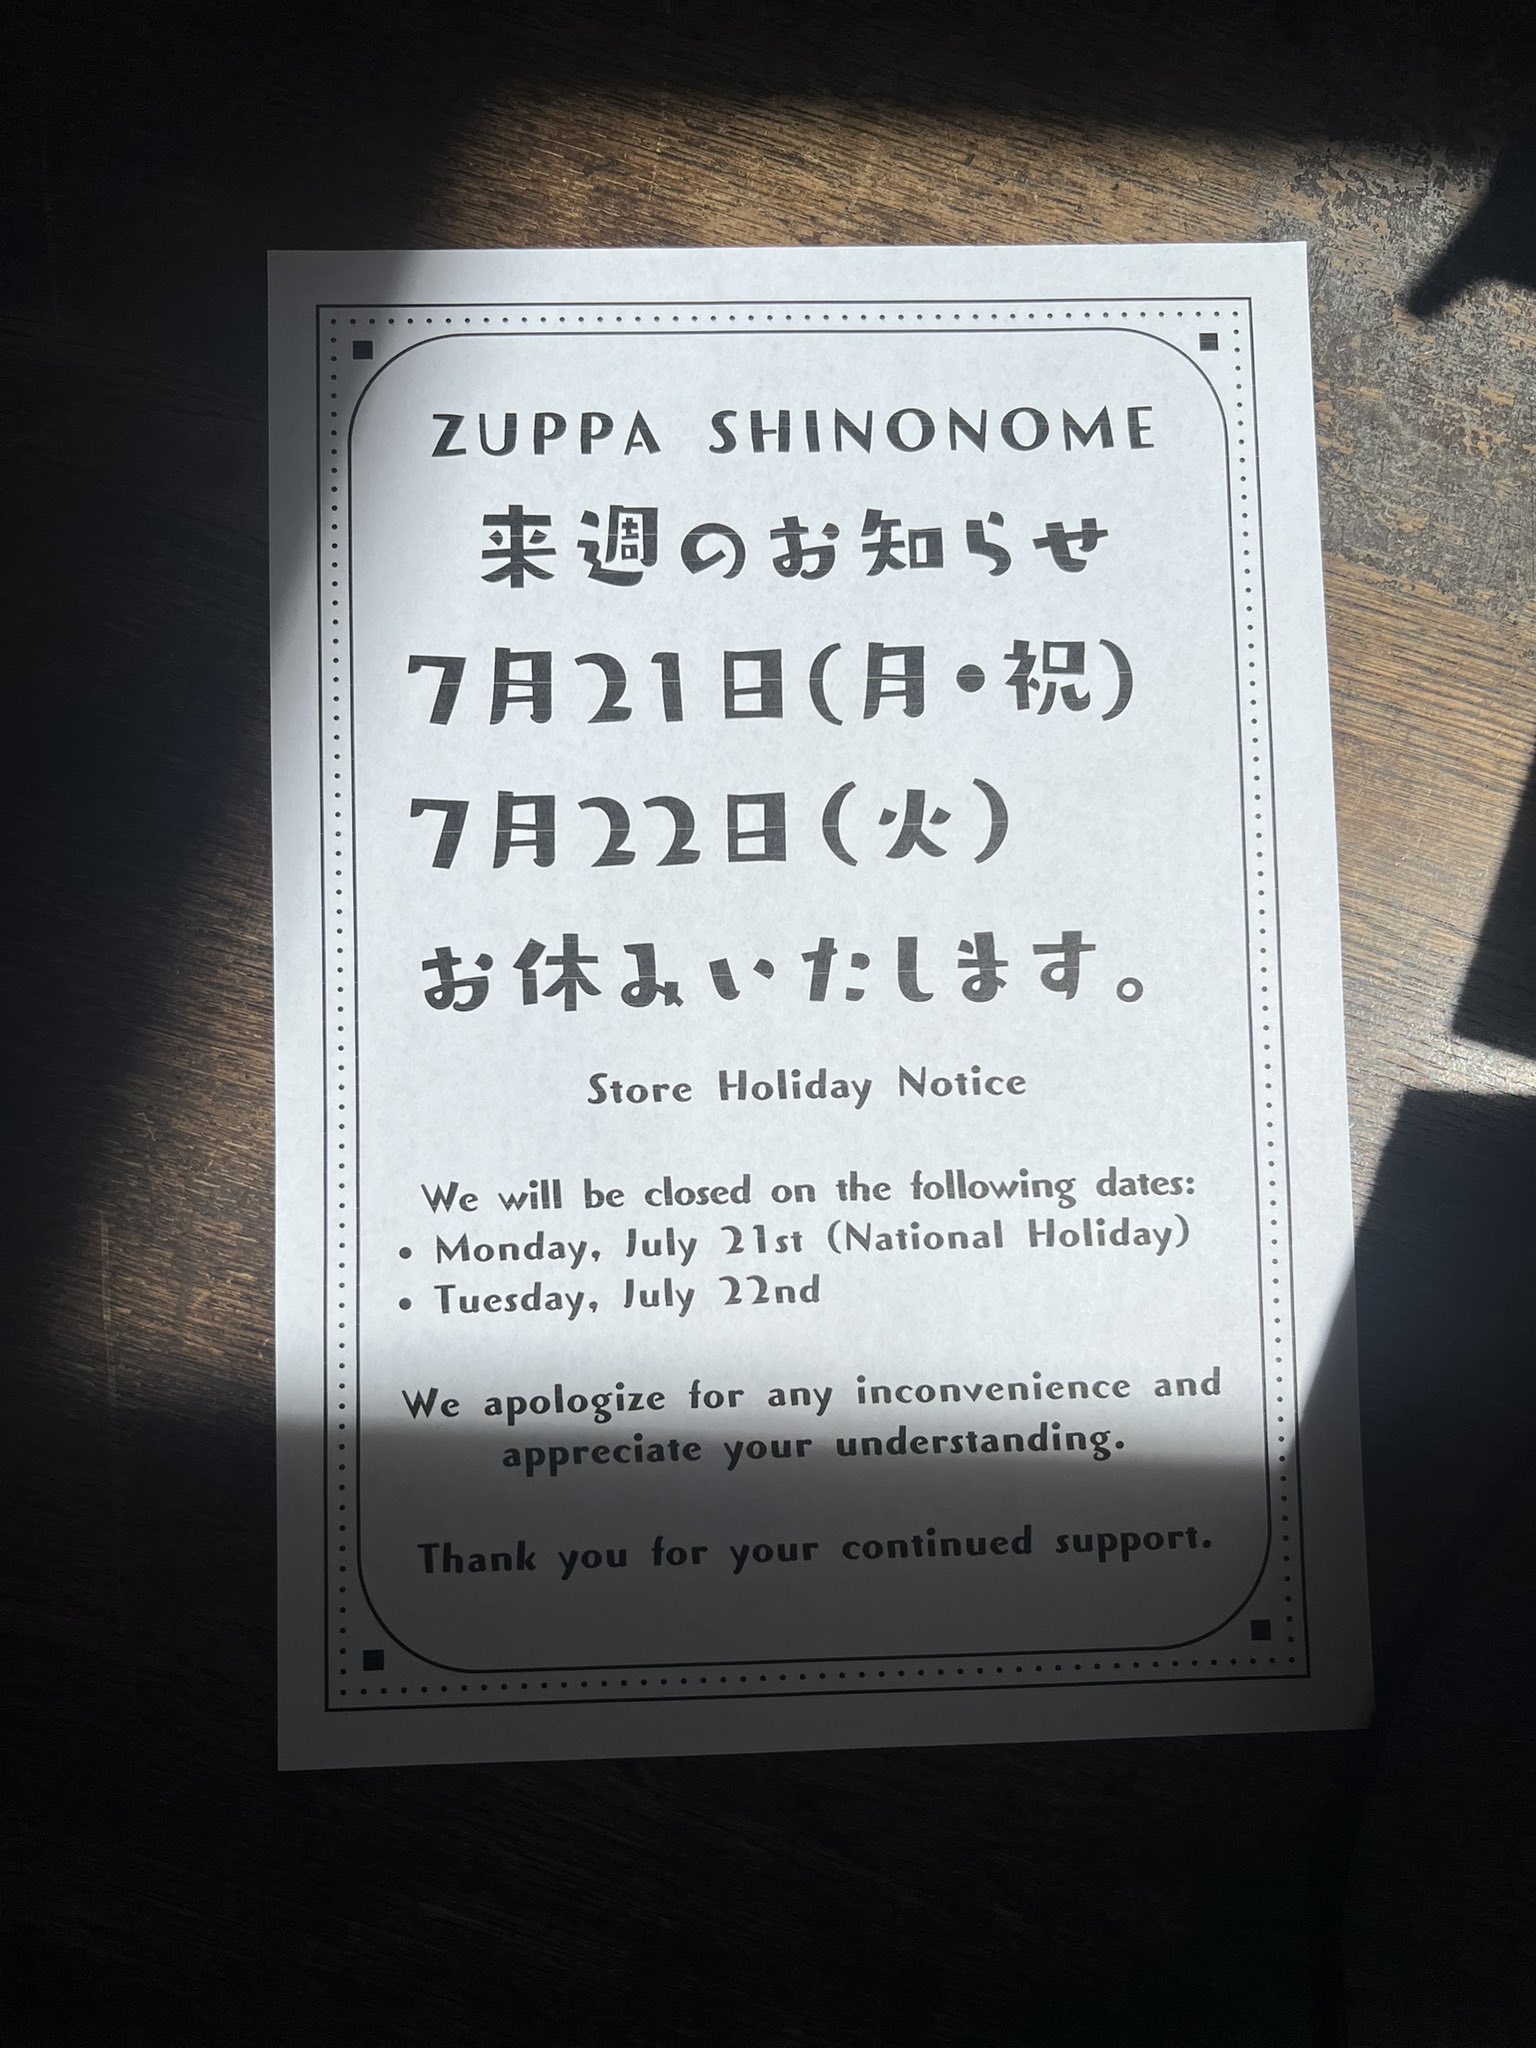 ZUPPA SHINONOME
来週のお知らせ
7月21日(月・祝)
7月22日(火)
お休みいたします。
Store Holiday Notice
We will be closed on the following dates:
• Monday, July 21st (National Holiday)
• Tuesday, July 22nd
We apologize for any inconvenience and
appreciate your understanding.
Thank you for your continued support.